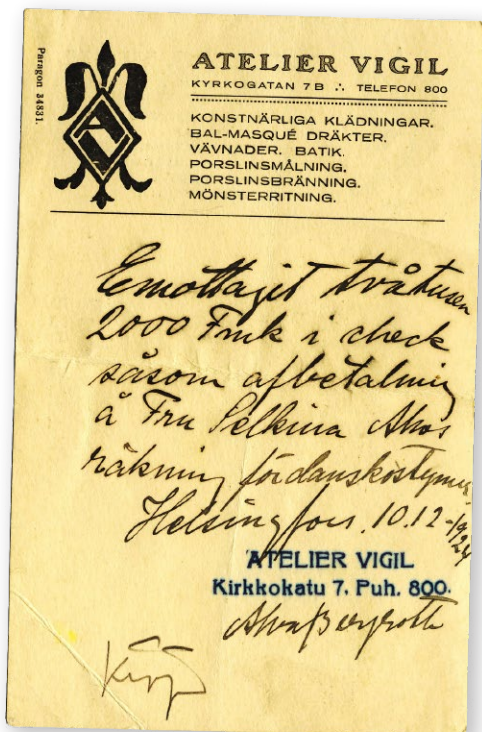 Paragon 34831.
ATELIER VIGIL
KYRKOGATAN 7 B ∴ TELEFON 800
KONSTNÄRLIGA KLÄDNINGAR.
BAL-MASQUÉ DRÄKTER.
VÄVNADER. BATIK.
PORSLINSMÅLNING.
PORSLINSBRÄNNING.
MÖNSTERRITNING.
Emottagit tvåtusen
2000 Fmk i check
såsom afbetalning
å Fru Selkina Ahos
räkning för danskostymer.
Helsingfors. 10.12-1924
ATELIER VIGIL
Kirkkokatu 7. Puh. 800.
Bergroth